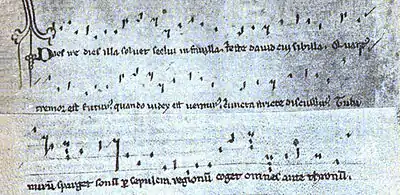 Dies ire dies illa soluet seclū in fauilla. teste dauid cū sibilla. Quātꝰ
tremor est futurꝰ quando iudex est venturꝰ cuncta stricte discussurꝰ. Tuba
mirū sparget sonū ꝑ sepulcra regionū coget omnes ante thronū.